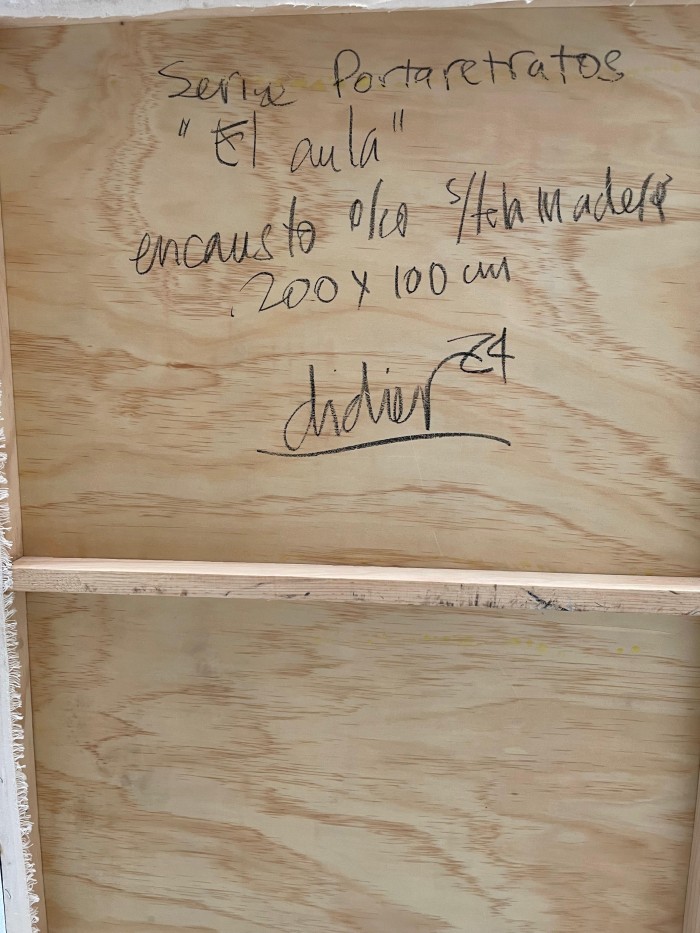 Serie Portaretratos
"El aula"
encausto oleo s/tela madera
200 x 100 cm
didier 24